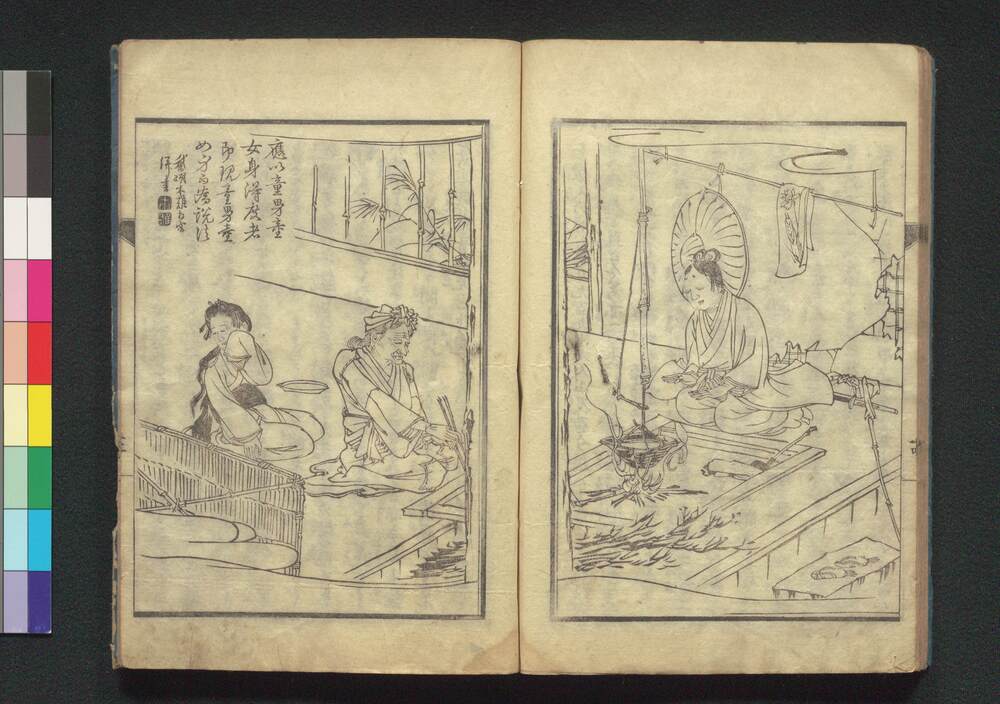 應以童男童
女身得度者
即現童男童
女身而為説法
併書